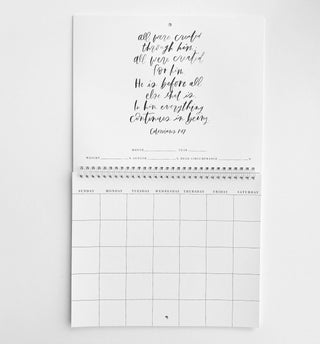 All were created
through him,
all were created
for him.
He is before all
else that is.
In him everything
continues in being.
Colossians 1:17
MONTH YEAR
WEIGHT % LENGTH % HEAD CIRCUMFERENCE %
SUNDAY MONDAY TUESDAY WEDNESDAY THURSDAY FRIDAY SATURDAY